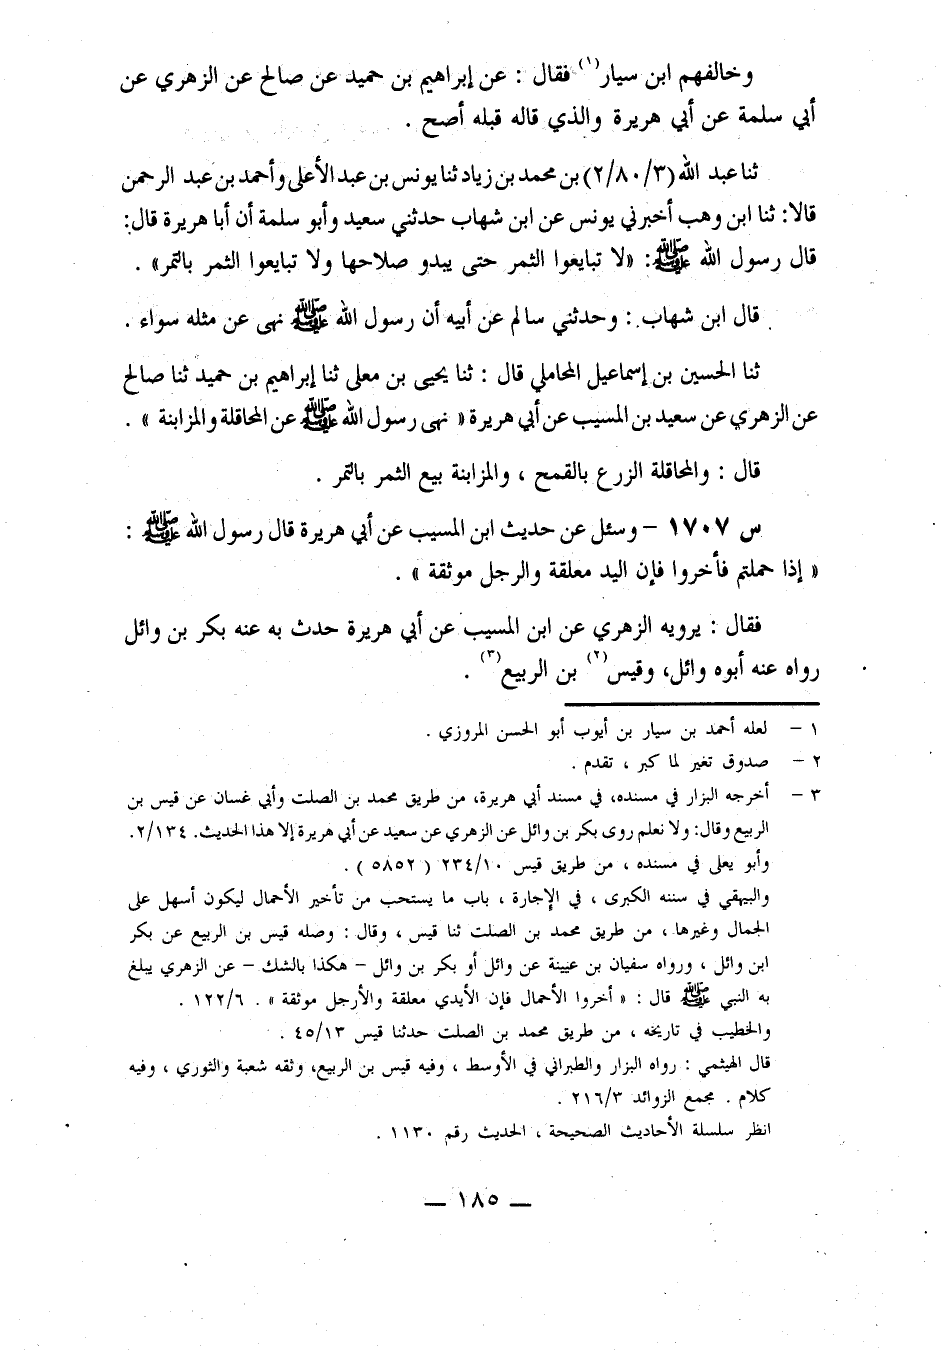 وخالفهم ابن سيار(١) فقال : عن إبراهيم بن حميد عن صالح عن الزهري عن
أبي سلمة عن أبي هريرة والذي قاله قبله أصح .
ثنا عبد الله (٢/٨٠/٣) بن محمد بن زياد ثنا يونس بن عبد الأعلى وأحمد بن عبد الرحمن
قالا: ثنا ابن وهب أخبرني يونس عن ابن شهاب حدثني سعيد وأبو سلمة أن أبا هريرة قال:
قال رسول الله ﷺ: «لا تبايعوا الثمر حتى يبدو صلاحها ولا تبايعوا الثمر بالتمر» .
قال ابن شهاب : وحدثني سالم عن أبيه أن رسول الله ﷺ نهى عن مثله سواء .
ثنا الحسين بن إسماعيل المحاملي قال : ثنا يحيى بن معلى ثنا إبراهيم بن حميد ثنا صالح
عن الزهري عن سعيد بن المسيب عن أبي هريرة « نهى رسول الله ﷺ عن المحاقلة والمزابنة » .
قال : والمحاقلة الزرع بالقمح ، والمزابنة بيع الثمر بالتمر .
س ١٧٠٧ – وسئل عن حديث ابن المسيب عن أبي هريرة قال رسول الله ﷺ :
« إذا حملتم فأخروا فإن اليد معلقة والرجل موثقة » .
فقال : يرويه الزهري عن ابن المسيب عن أبي هريرة حدث به عنه بكر بن وائل
رواه عنه أبوه وائل، وقيس(٢) بن الربيع(٣) .
١ – لعله أحمد بن سيار بن أيوب أبو الحسن المروزي .
٢ – صدوق تغير لما كبر ، تقدم .
٣ – أخرجه البزار في مسنده، في مسند أبي هريرة، من طريق محمد بن الصلت وأبي غسان عن قيس بن
الربيع وقال: ولا نعلم روى بكر بن وائل عن الزهري عن سعيد عن أبي هريرة إلا هذا الحديث. ٢/١٣٤.
وأبو يعلى في مسنده ، من طريق قيس ٢٣٤/١٠ ( ٥٨٥٢ ) .
والبيهقي في سننه الكبرى ، في الإجارة ، باب ما يستحب من تأخير الأحمال ليكون أسهل على
الجمال وغيرها ، من طريق محمد بن الصلت ثنا قيس ، وقال : وصله قيس بن الربيع عن بكر
ابن وائل ، ورواه سفيان بن عيينة عن وائل أو بكر بن وائل – هكذا بالشك – عن الزهري يبلغ
به النبي ﷺ قال : « أخروا الأحمال فإن الأيدي معلقة والأرجل موثقة » . ١٢٢/٦ .
والخطيب في تاريخه ، من طريق محمد بن الصلت حدثنا قيس ٤٥/١٣ .
قال الهيثمي : رواه البزار والطبراني في الأوسط ، وفيه قيس بن الربيع، وثقه شعبة والثوري ، وفيه
كلام . مجمع الزوائد ٢١٦/٣ .
انظر سلسلة الأحاديث الصحيحة ، الحديث رقم ١١٣٠ .
— ١٨٥ —